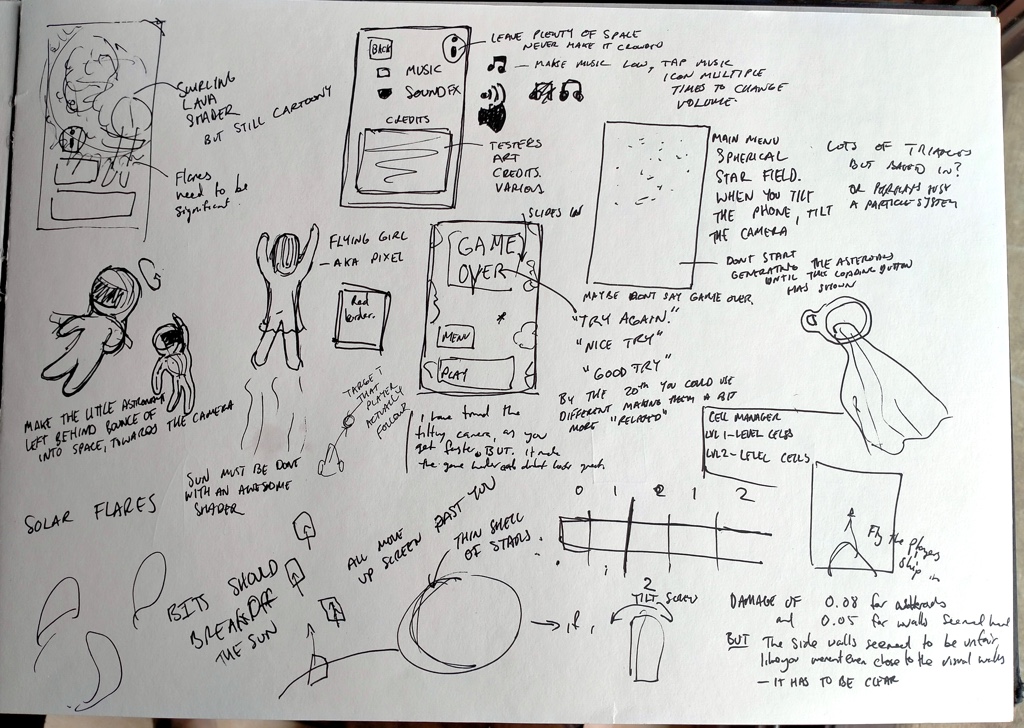 SWIRLING
LAVA
SHADER
BUT STILL CARTOONY
Flares
need to be
significant.
BACK
MUSIC
SOUND FX
CREDITS
LEAVE PLENTY OF SPACE
NEVER MAKE IT CROWDED
— MAKE MUSIC LOW, TAP MUSIC
ICON MULTIPLE
TIMES TO CHANGE
VOLUME.
TESTERS
ART
CREDITS.
VARIOUS
MAIN MENU
SPHERICAL
STAR FIELD.
WHEN YOU TILT
THE PHONE, TILT
THE CAMERA
LOTS OF TRIANGLES
BUT BAKED IN?
OR PERHAPS JUST
A PARTICLE SYSTEM
DONT START
GENERATING THE ASTEROIDS
UNTIL THE LOADING BUTTON
HAS SHOWN
FLYING GIRL
— AKA PIXEL
Red
border.
SLIDES IN
GAME
OVER
MENU
PLAY
MAYBE DONT SAY GAME OVER,
"TRY AGAIN."
"NICE TRY"
"GOOD TRY"
BY THE 20th YOU COULD USE
DIFFERENT MAKING THEM A BIT
MORE "RELAXED"
MAKE THE LITTLE ASTRONAUT
LEFT BEHIND BOUNCE OFF
INTO SPACE, TOWARDS THE CAMERA
TARGET
THAT
PLAYER
ACTUALLY
FOLLOWS
I have tried the
tilting camera, as you
get faster. BUT. it made
the game harder and didnt look great.
CELL MANAGER
LVL 1 - LEVEL CELLS
LVL 2 - LEVEL CELLS
SUN MUST BE DONE
WITH AN AWESOME
SHADER
SOLAR FLARES
BITS SHOULD
BREAK OFF
THE SUN
ALL MOVE
UP SCREEN PAST YOU
THIN SHELL
OF STARS.
0 1 2 1 2
2
TILT SCREEN
Fly the players
ship in
DAMAGE OF 0.08 for asteroids
and 0.05 for walls seemed hard
BUT The side walls seemed to be unfair
like you werent even close to the visual walls
— IT HAS TO BE CLEAR